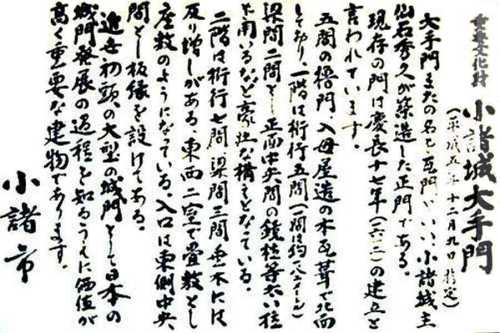 重要文化財 小諸城大手門
(平成五年十二月九日指定)
大手門またの名を瓦門といい、小諸城主
仙石秀久が築造した正門である。
現存の門は慶長十七年(一六一二)の建立と
言われています。
五間の櫓門、入母屋造の本瓦葺で北面
しており、一階は桁行五間(一間は約一・八メートル)
梁間二間とし正面中央間の鏡柱等太い柱
を用いるなど豪壮な構えとなっている。
二階は桁行七間、梁間三間垂木には
反り増しがある、東西二室で畳敷とし
座敷のようになっている、入口は東側中央
間とし板縁を設けてある。
近世初頭の大型の城門として日本の
城門発展の過程を知るうえに価値が
高く重要な建物であります。
小諸市